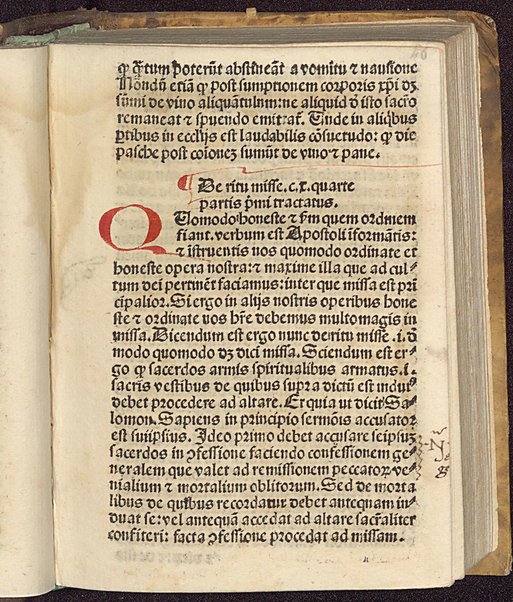 46
ꝙ q̃tum poterũt abstineãt a vomitu ⁊ nausione
Nondũ etiã ꝙ post sumptionem corporis xp̃i dꝫ
sũmi de vino aliquãtulum: ne aliquid ð isto sacr̃o
remaneat ⁊ spuendo emittat̃. Unde in aliq̃bus
ꝑtibus in eccl'ijs est laudabilis cõsuetudo: ꝙ die
pasche post cõionez sumũt de vino ⁊ pane.
¶ De ritu misse. c. x. quarte
partis p̃mi tractatus.
QUomodo honeste ⁊ fm quem ordinem
fiant. verbum est Apostoli iformãtis:
⁊ istruentis uos quomodo ordinate et
honeste opera nostra: ⁊ maxime illa que ad cul-
tum dei pertinẽt faciamus: inter que missa est prĩ
cipalior. Si ergo in alijs nostris operibus hone
ste ⁊ ordinate uos hr̃e debemus multomagis in
missa. Dicendum est ergo nunc de ritu misse .i. ð
modo quomodo dꝫ dici missa. Sciendum est er-
go ꝙ sacerdos armis spiritualibus armatus .i.
sacris vestibus de quibus supra dictũ est indut'
debet procedere ad altare. Et quia ut dicit Sa-
lomon. Sapiens in principio sermõis accusator
est suiipsius. Ideo primo debet accusare seipsuz
sacerdos in ꝯfessione faciendo confessionem ge-
neralem que valet ad remissionem peccatoꝝ ve-
nialium ⁊ mortalium oblitorum. Sed de morta
libus de quibus recordatur debet antequam in-
duat se: vel antequã accedat ad altare sacr̃aliter
confiteri: facta ꝯfessione procedat ad missam.